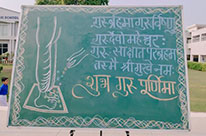 गुरु ब्रह्मा गुरु विष्णु
गुरु देवो महेश्वरः
गुरु साक्षात परब्रह्म
तस्मै श्री गुरुवे नमः
शुभ गुरु पूर्णिमा